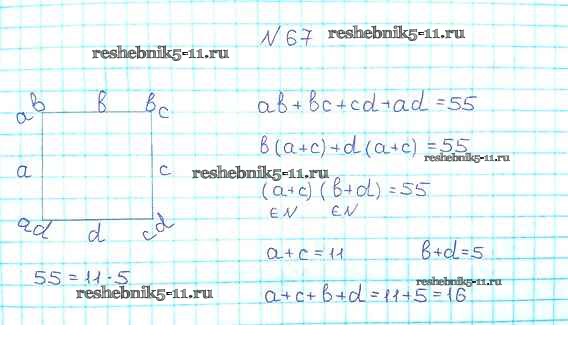 N 67 reshebnik5-11.ru
reshebnik5-11.ru
ab b bc
a c
ad d cd
55 = 11 · 5
reshebnik5-11.ru
ab + bc + cd + ad = 55
b(a+c) + d(a+c) = 55
reshebnik5-11.ru
reshebnik5-11.ru
(a+c)(b+d) = 55
∈N ∈N
a+c = 11 b+d = 5
reshebnik5-11.ru
a+c+b+d = 11+5 = 16